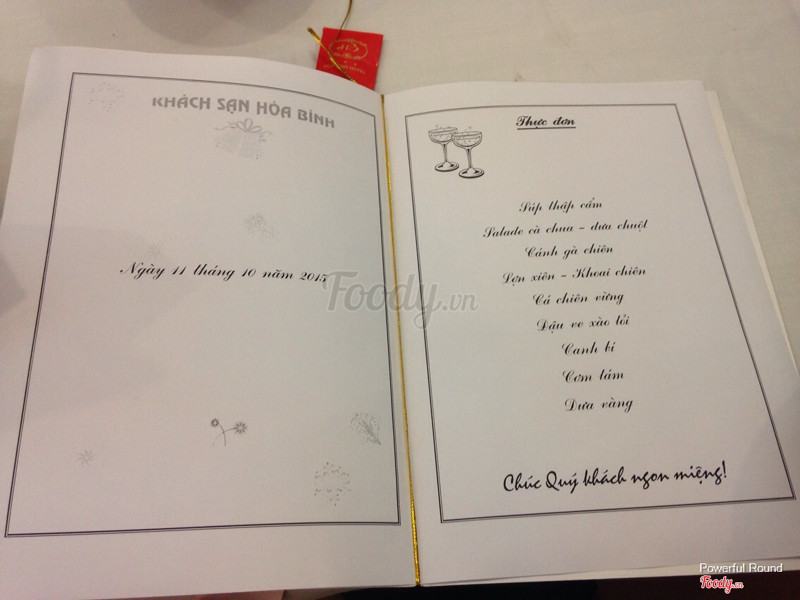 KHÁCH SẠN HÒA BÌNH
Ngày 11 tháng 10 năm 2015
Thực đơn
Súp thập cẩm
Salade cà chua - dưa chuột
Cánh gà chiên
Lợn xiên - Khoai chiên
Cá chiên vừng
Đậu ve xào tỏi
Canh bí
Cơm tám
Dưa vàng
Chúc Quý khách ngon miệng!
Foody.vn
Powerful Round
Foody.vn